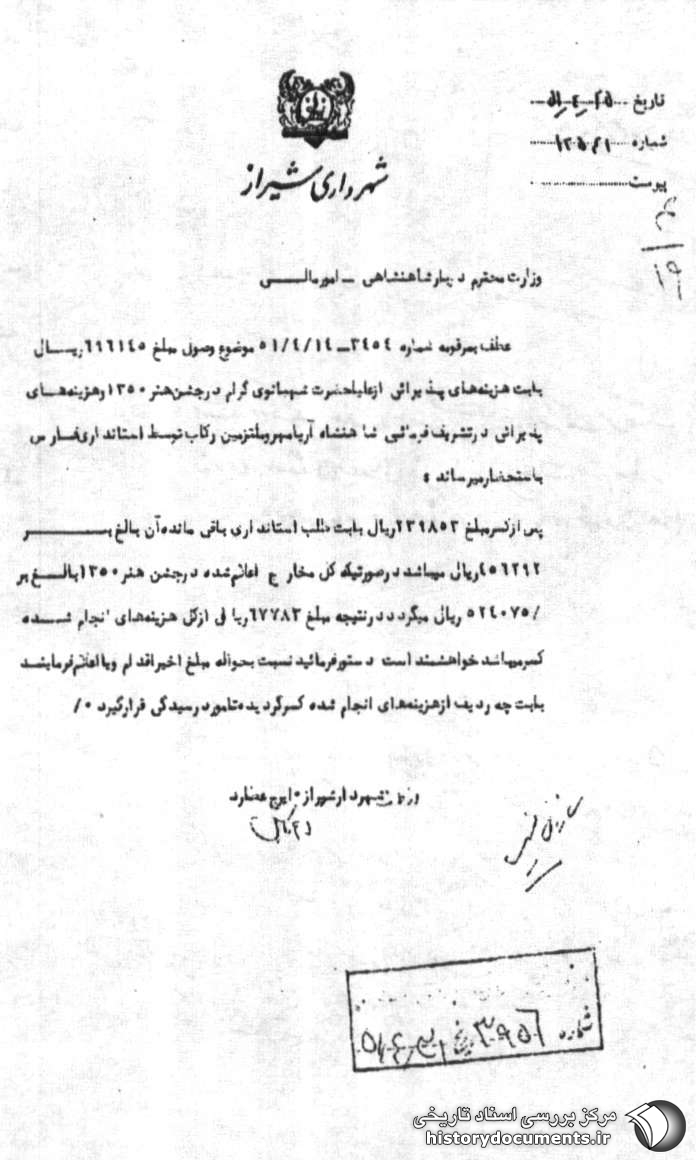 تاریخ ۵۱-۴-۲۵
شماره ۱۲۵۲۱
پیوست
شهرداری شیراز
وزارت محترم دربار شاهنشاهی – امور مالی
عطف بمرقومه شماره ۳۴۵۴ – ۵۱/۴/۱۴ موضوع وصول مبلغ ۶۹۶۱۴۵ ریال
بابت هزینه‌های پذیرائی ازعلیاحضرت شهبانوی گرام درجشن هنر ۱۳۵۰ وهزینه‌های
پذیرائی درتشریف فرمائی شاهنشاه آریامهر وملتزمین رکاب توسط استانداری فارس
باستحضار میرساند :
پس ازکسرمبلغ ۲۳۹۸۵۳ ریال بابت طلب استانداری باقی مانده آن بالغ بر
۴۵۶۲۹۲ ریال میباشد درصورتیکه کل مخارج اعلام شده درجشن هنر ۱۳۵۰ بالغ بر
/۵۲۴۰۷۵ ریال میگردد درنتیجه مبلغ ۶۷۷۸۳ ریال ازکل هزینه‌های انجام شده
کسرمیباشد خواهشمند است دستورفرمائید نسبت بحواله مبلغ اخیراقدام ویااعلام فرمایند
بابت چه ردیف ازهزینه‌های انجام شده کسرگردیده تامورد رسیدگی قرارگیرد ۰/
شهردار شیراز ۰ ایرج عضارد
شماره ۳۹۵۶ تاریخ
مرکز بررسی اسناد تاریخی
historydocuments.ir